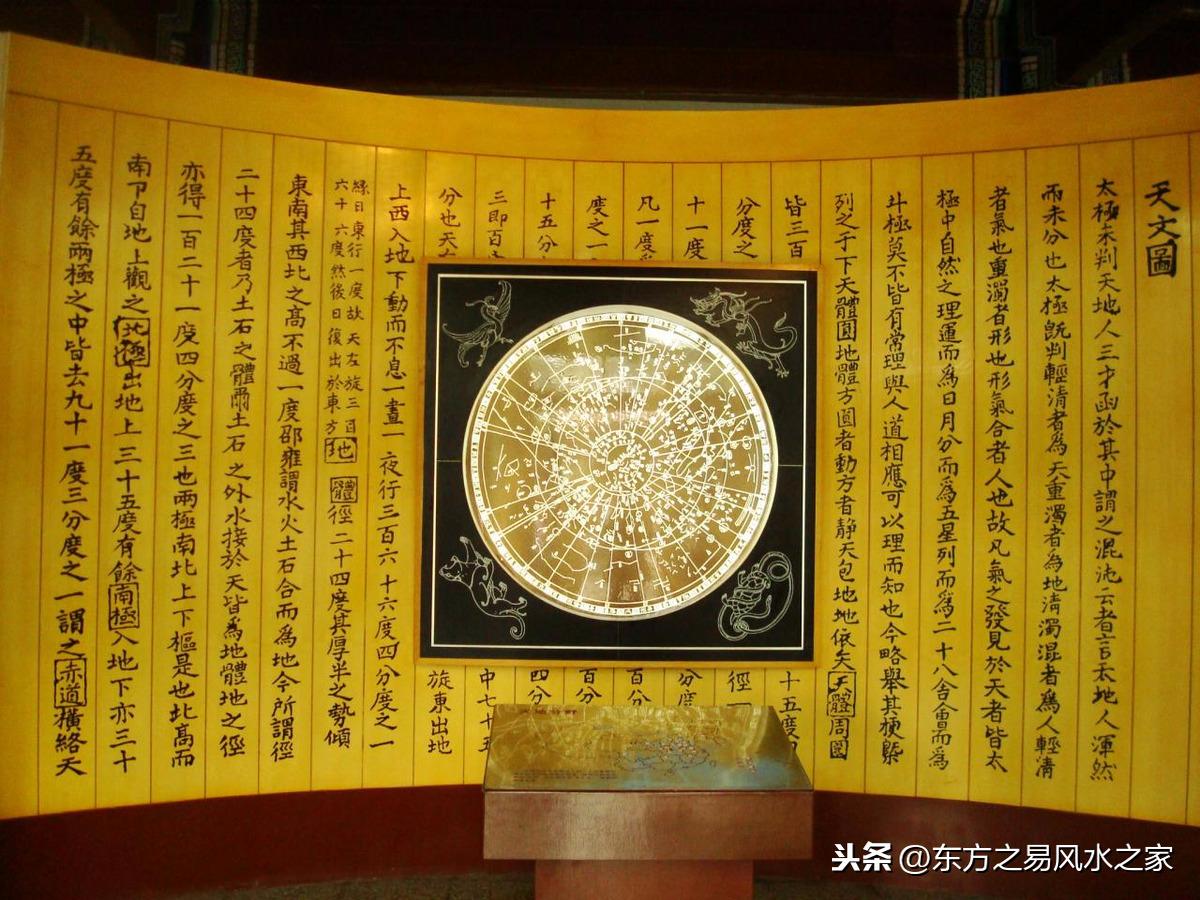 天文圖
太極未判天地人三才函於其中謂之混沌云者言天地人渾然
而未分也太極既判輕清者為天重濁者為地清濁混者為人輕清
者氣也重濁者形也形氣合者人也故凡氣之發見於天者皆太
極中自然之理運而為日月分而為五星列而為二十八舍會而為
斗極莫不皆有常理與人道相應可以理而知也今略舉其梗槩
列之于下天體圓地體方圓者動方者静天包地地依天天體周圍
皆三百
十五度四
分度之
徑一
十一度
分度
凡一度為
百分
度之一
百分
十五分
四分
三即百
中七十五
分也天
旋東出地
上西入地下動而不息一晝一夜行三百六十六度四分度之一
緣日東行一度故天左旋三百
六十六度然後日復出於東方
地體徑二十四度其厚半之勢傾
東南其西北之高不過一度邵雍謂水火土石合而為地今所謂徑
二十四度者乃土石之體爾土石之外水接於天皆為地體地之徑
亦得一百二十一度四分度之三也兩極南北上下樞是也北高而
南下自地上觀之北極出地上三十五度有餘南極入地下亦三十
五度有餘兩極之中皆去九十一度三分度之一謂之赤道橫絡天
头条 @东方之易风水之家